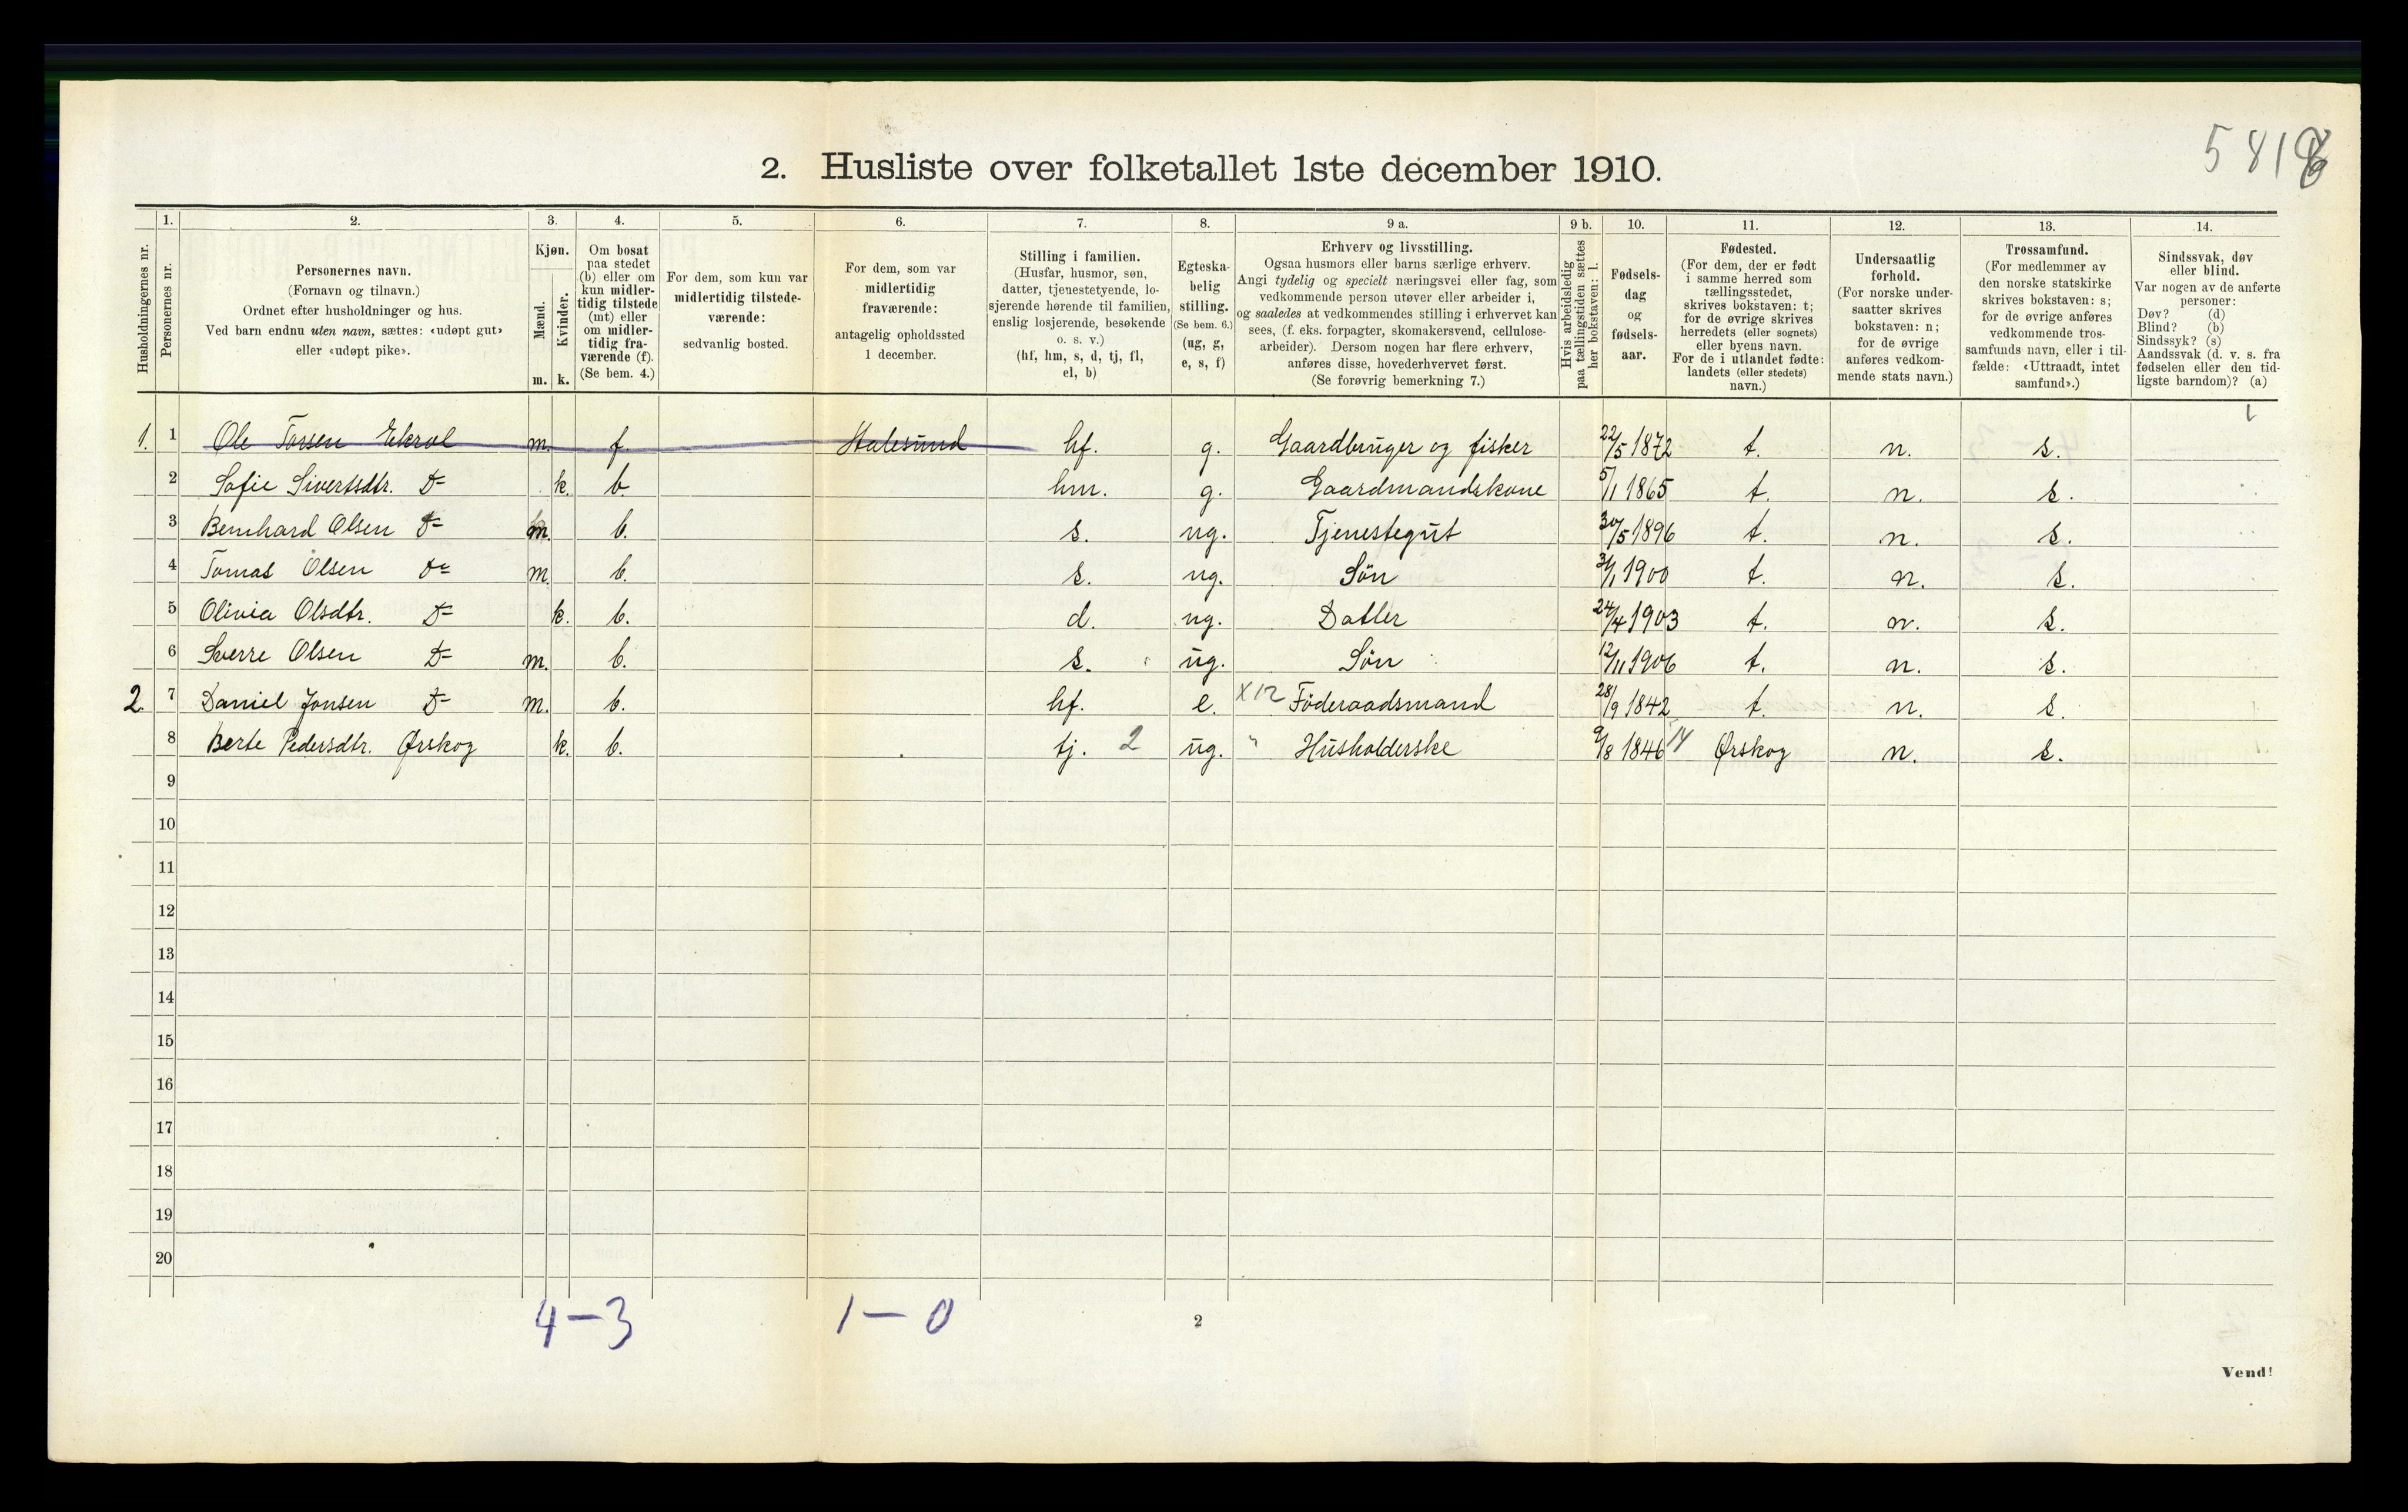 2. Husliste over folketallet 1ste december 1910.
1. 2. 3. 4. 5. 6. 7. 8. 9 a. 9 b. 10. 11. 12. 13. 14.
Husholdningernes nr.
Personernes nr.
Personernes navn.
(Fornavn og tilnavn.)
Ordnet efter husholdninger og hus.
Ved barn endnu uten navn, sættes: «udøpt gut»
eller «udøpt pike».
Kjøn.
Mænd.
Kvinder.
m. k.
Om bosat
paa stedet
(b) eller om
kun midler-
tidig tilstede
(mt) eller
om midler-
tidig fra-
værende (f).
(Se bem. 4.)
For dem, som kun var
midlertidig tilstede-
værende:
sedvanlig bosted.
For dem, som var
midlertidig
fraværende:
antagelig opholdssted
1 december.
Stilling i familien.
(Husfar, husmor, søn,
datter, tjenestetyende, lo-
sjerende hørende til familien,
enslig losjerende, besøkende
o. s. v.)
(hf, hm, s, d, tj, fl,
el, b)
Egteska-
belig
stilling.
(Se bem. 6.)
(ug, g,
e, s, f)
Erhverv og livsstilling.
Ogsaa husmors eller barns særlige erhverv.
Angi tydelig og specielt næringsvei eller fag, som
vedkommende person utøver eller arbeider i,
og saaledes at vedkommendes stilling i erhvervet kan
sees, (f. eks. forpagter, skomakersvend, cellulose-
arbeider). Dersom nogen har flere erhverv,
anføres disse, hovederhvervet først.
(Se forøvrig bemerkning 7.)
Hvis arbeidsledig
paa tællingstiden sættes
her bokstaven: l.
Fødsels-
dag
og
fødsels-
aar.
Fødested.
(For dem, der er født
i samme herred som
tællingsstedet,
skrives bokstaven: t;
for de øvrige skrives
herredets (eller sognets)
eller byens navn.
For de i utlandet fødte:
landets (eller stedets)
navn.)
Undersaatlig
forhold.
(For norske under-
saatter skrives
bokstaven: n;
for de øvrige
anføres vedkom-
mende stats navn.)
Trossamfund.
(For medlemmer av
den norske statskirke
skrives bokstaven: s;
for de øvrige anføres
vedkommende tros-
samfunds navn, eller i til-
fælde: «Uttraadt, intet
samfund».)
Sindssvak, døv
eller blind.
Var nogen av de anførte
personer:
Døv? (d)
Blind? (b)
Sindssyk? (s)
Aandssvak (d. v. s. fra
fødselen eller den tid-
ligste barndom)? (a)
1. 1 Ole m. f. hf. g. Gaardbruger og fisker 22/5 1872 t. n. s.
2 Sofie Sivertsdtr. D= k. b. hm. g. Gaardmandskone 5/1 1865 t. n. s.
3 Bernhard Olsen D= m. b. s. ug. Tjenestegut 30/5 1896 t. n. s.
4 Tomas Olsen D= m. b. s. ug. Søn 1900 t. n. s.
5 Olivia Olsdtr. D= k. b. d. ug. Datter 24/4 1903 t. n. s.
6 Sverre Olsen D= m. b. s. ug. Søn 12/11 1906 t. n. s.
2. 7 Daniel Jonsen D= m. b. hf. e. X12 Föderaadsmand 28/9 1842 t. n. s.
8 Berte Pedersdtr. Ørskog k. b. tj. 2 ug. " Husholderske 9/8 1846 14 Ørskog n. s.
9
10
11
12
13
14
15
16
17
18
19
20
4–3 1–0
2
Vend!